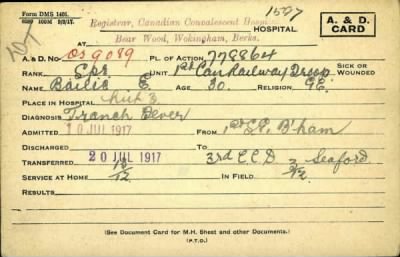 Form DMS 1401.
1597
Registrar, Canadian Convalescent Hospital
HOSPITAL
Bear Wood, Wokingham, Berks.
A. & D. CARD
A. & D. No. OS9089 PL. OF ACTION 778864
RANK Spr UNIT 1st Can Railway Troop SICK OR WOUNDED
NAME Bailie E AGE 30. RELIGION CE.
PLACE IN HOSPITAL Hut 3
DIAGNOSIS Trench Fever
ADMITTED 10 JUL 1917 FROM 1st S.G. B'ham
DISCHARGED TO
TRANSFERRED 20 JUL 1917 3rd C C D Seaford
SERVICE AT HOME 13/12 IN FIELD 3/12
RESULTS
(See Document Card for M.H. Sheet and other Documents.)
(P.T.O.)